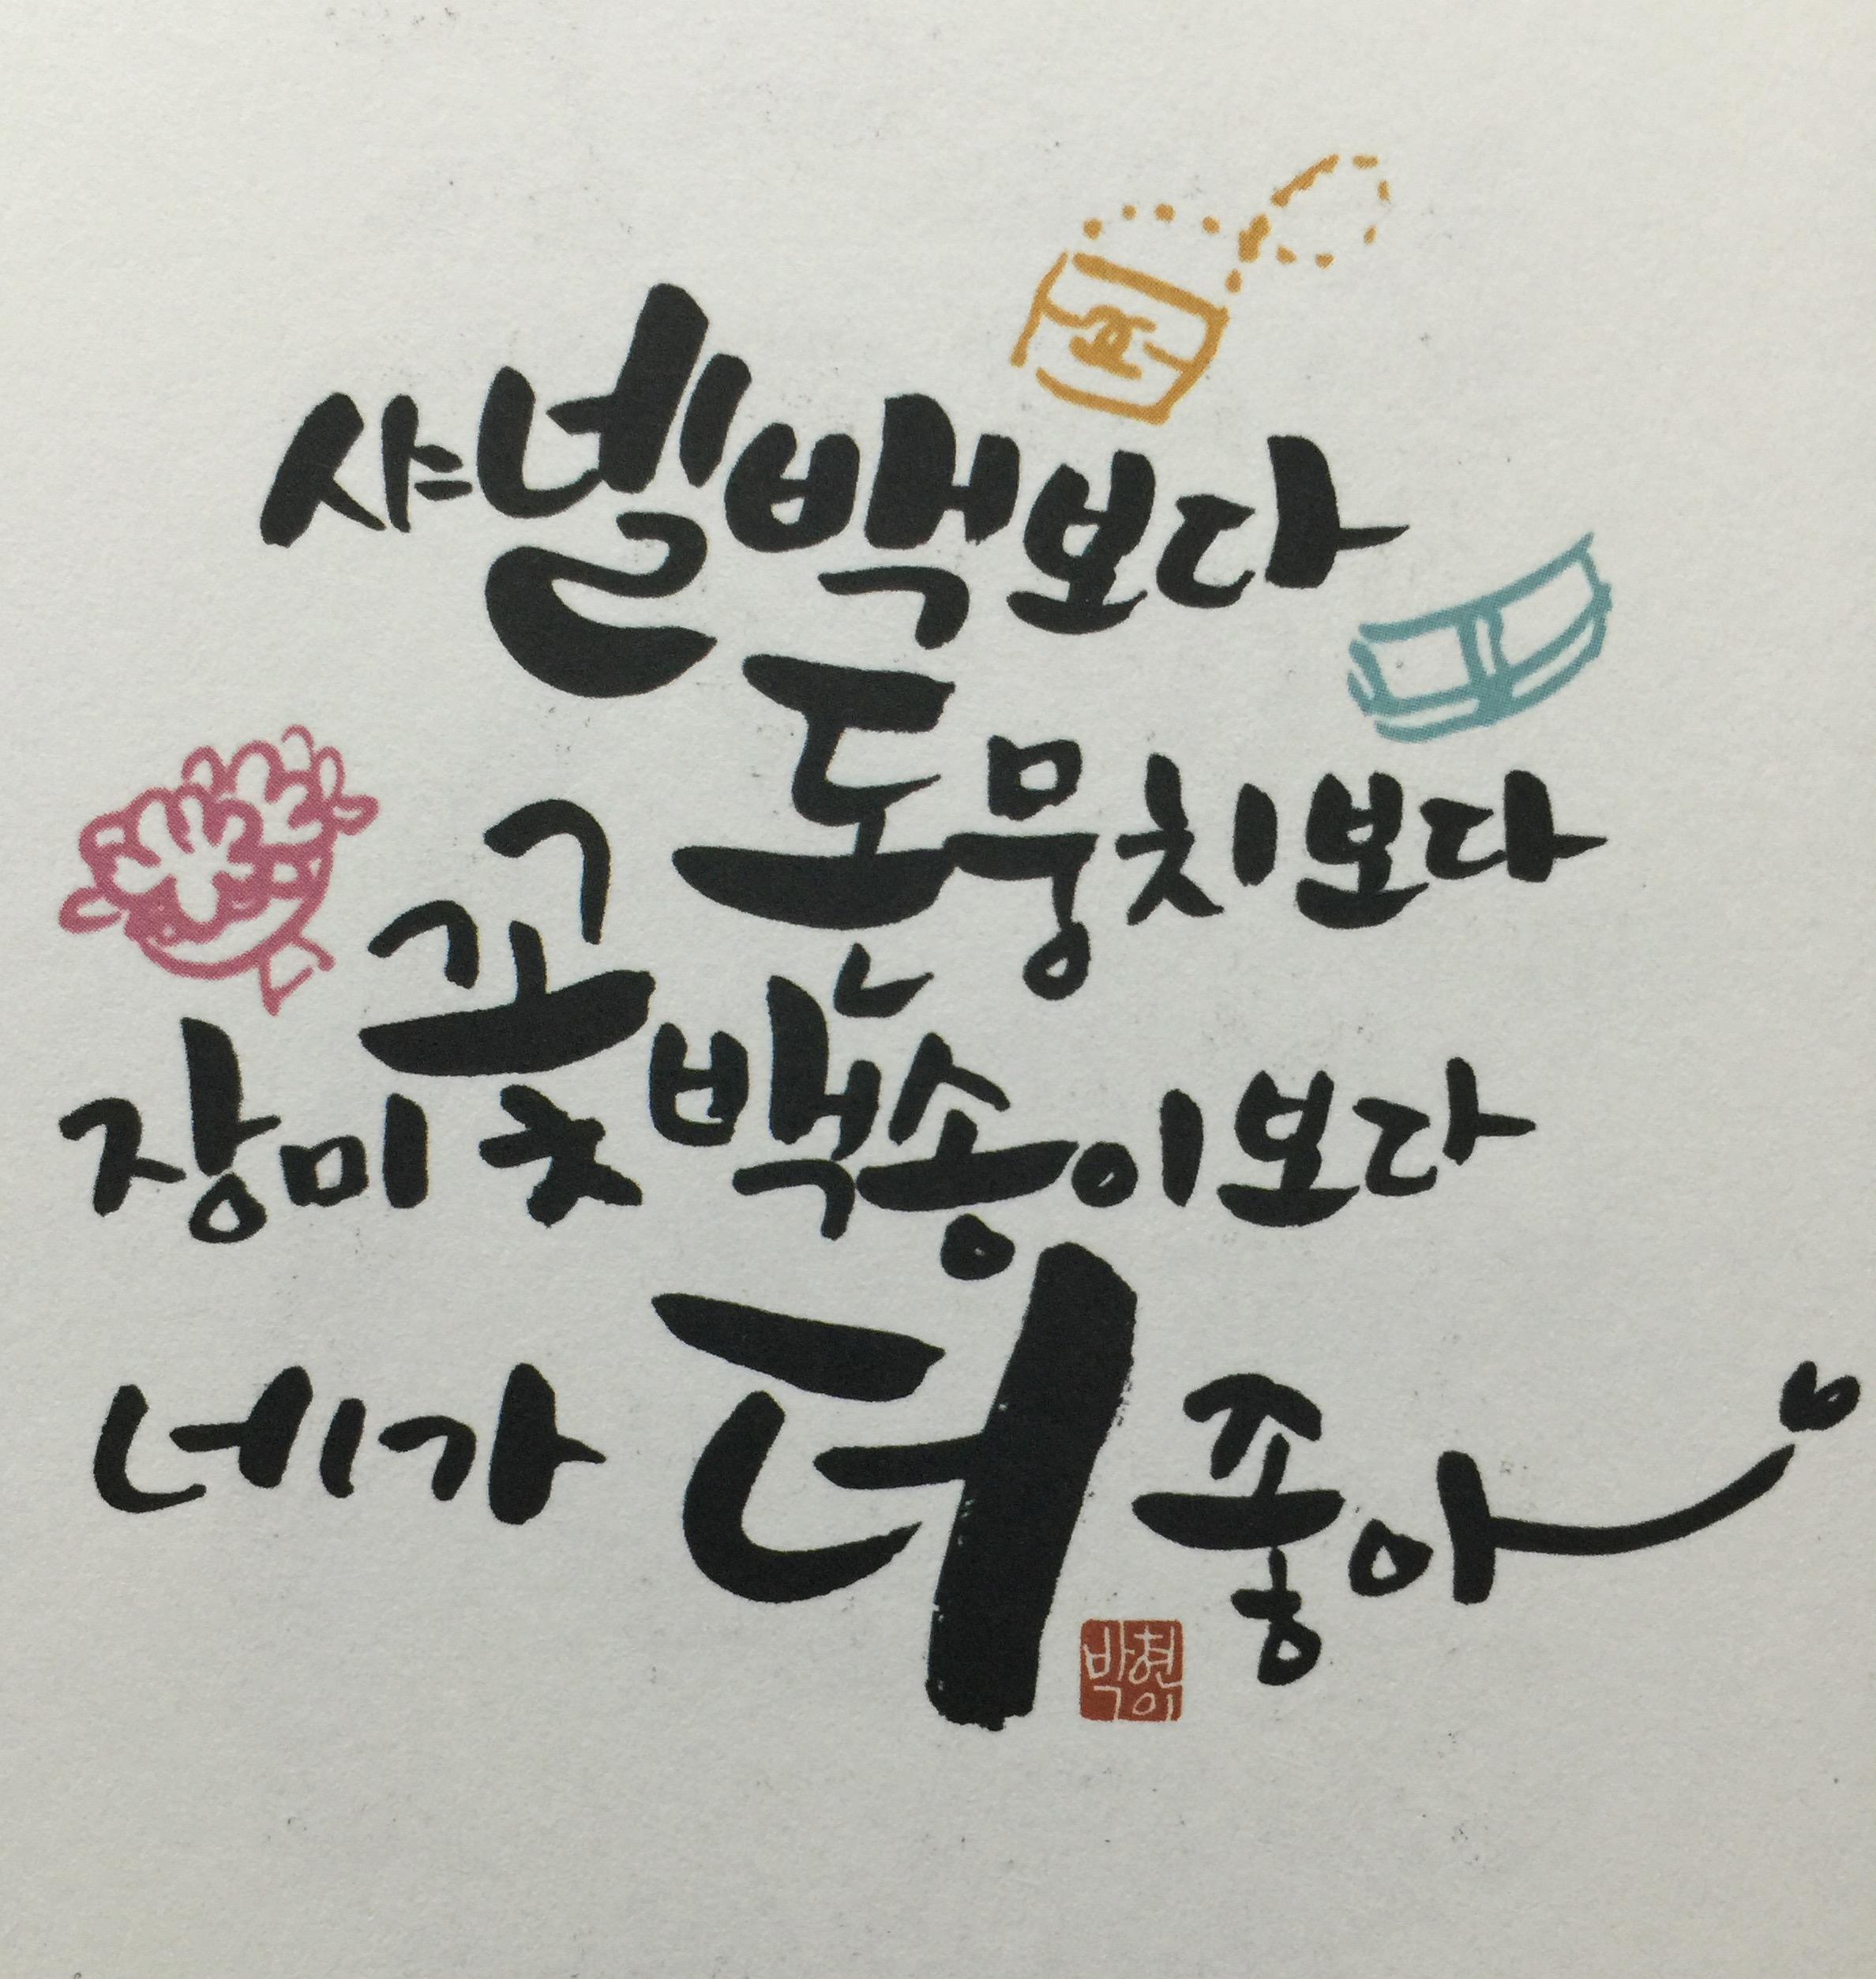 샤넬백보다
돈뭉치보다
장미꽃백송이보다
네가 더 좋아
박현이